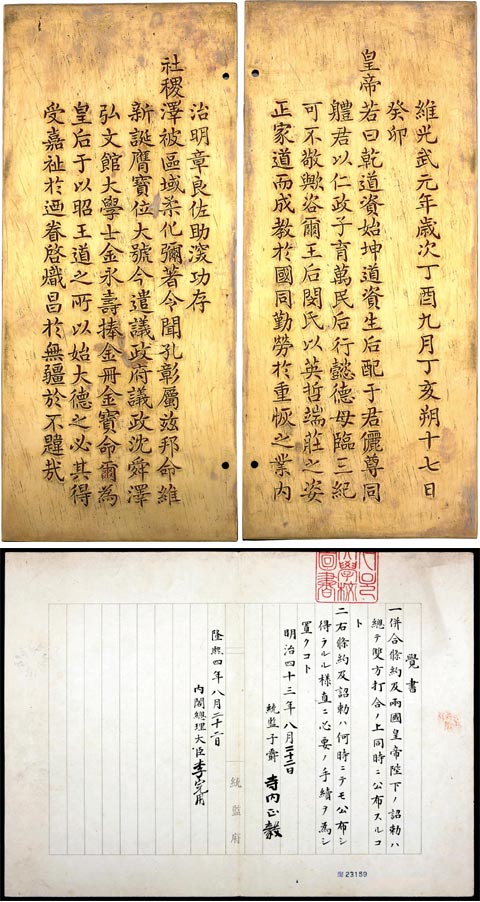 維光武元年歲次丁酉九月丁亥朔十七日
癸卯
皇帝若曰乾道資始坤道資生后配于君儷尊同
軆君以仁政子育萬民后行懿德母臨三紀
可不敬歟咨爾王后閔氏以英哲端莊之姿
正家道而成敎於國同勤勞於重恢之業內
治明章良佐助深功存
社稷澤被區域柔化彌著令聞孔彰屬玆邦命維
新誕膺寶位大號今遣議政府議政沈舜澤
弘文館大學士金永壽捧金冊金寶命爾爲
皇后于以昭王道之所以始大德之必其得
受嘉祉於迺眷啓熾昌於無疆於不韙哉
覺書
一併合條約及兩國皇帝陛下ノ詔勅ハ
總テ雙方打合ノ上同時ニ公布スルコ
ト
二右條約及詔勅ハ何時ニテモ公布シ
得ラルル樣直ニ必要ノ手續ヲ爲シ
置クコト
明治四十三年八月二十二日
統監子爵 寺内正毅
統監府
隆熙四年八月二十二日
内閣總理大臣 李完用
23159